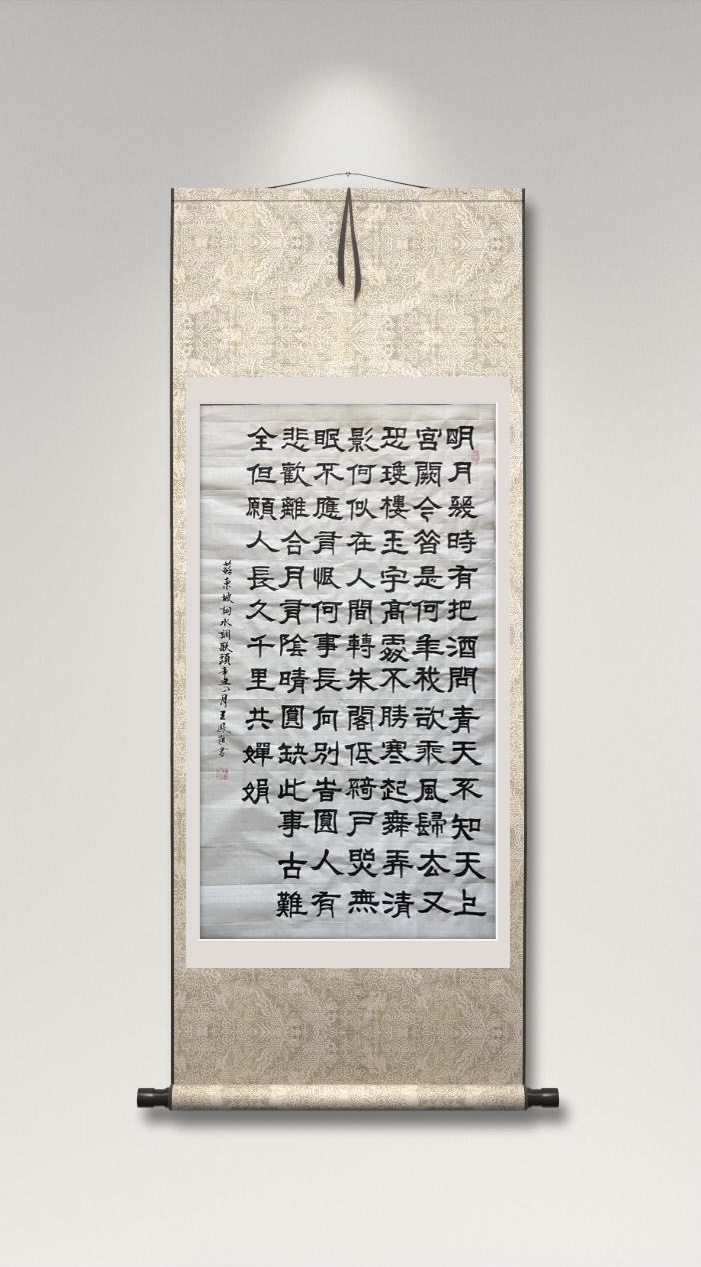 明月幾時有把酒問青天不知天上
宮闕今昝是何年我欲乘風歸去又
恐瓊樓玉宇高處不勝寒起舞弄清
影何似在人間轉朱閣低綺戶照無
眠不應有恨何事長向別旹圓人有
悲歡離合月有陰晴圓缺此事古難
全但願人長久千里共嬋娟
蘇東坡詞水調歌頭辛丑八月王書